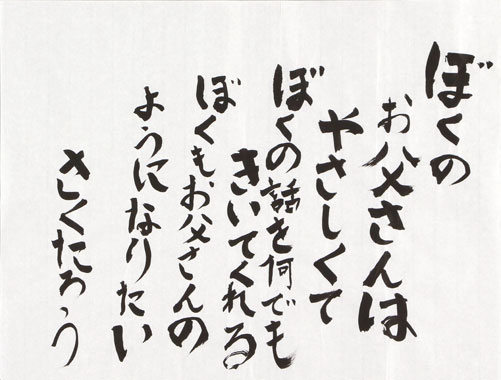 ぼくの
お父さんは
やさしくて
ぼくの話を何でも
きいてくれる
ぼくもお父さんの
ようになりたい
さくたろう